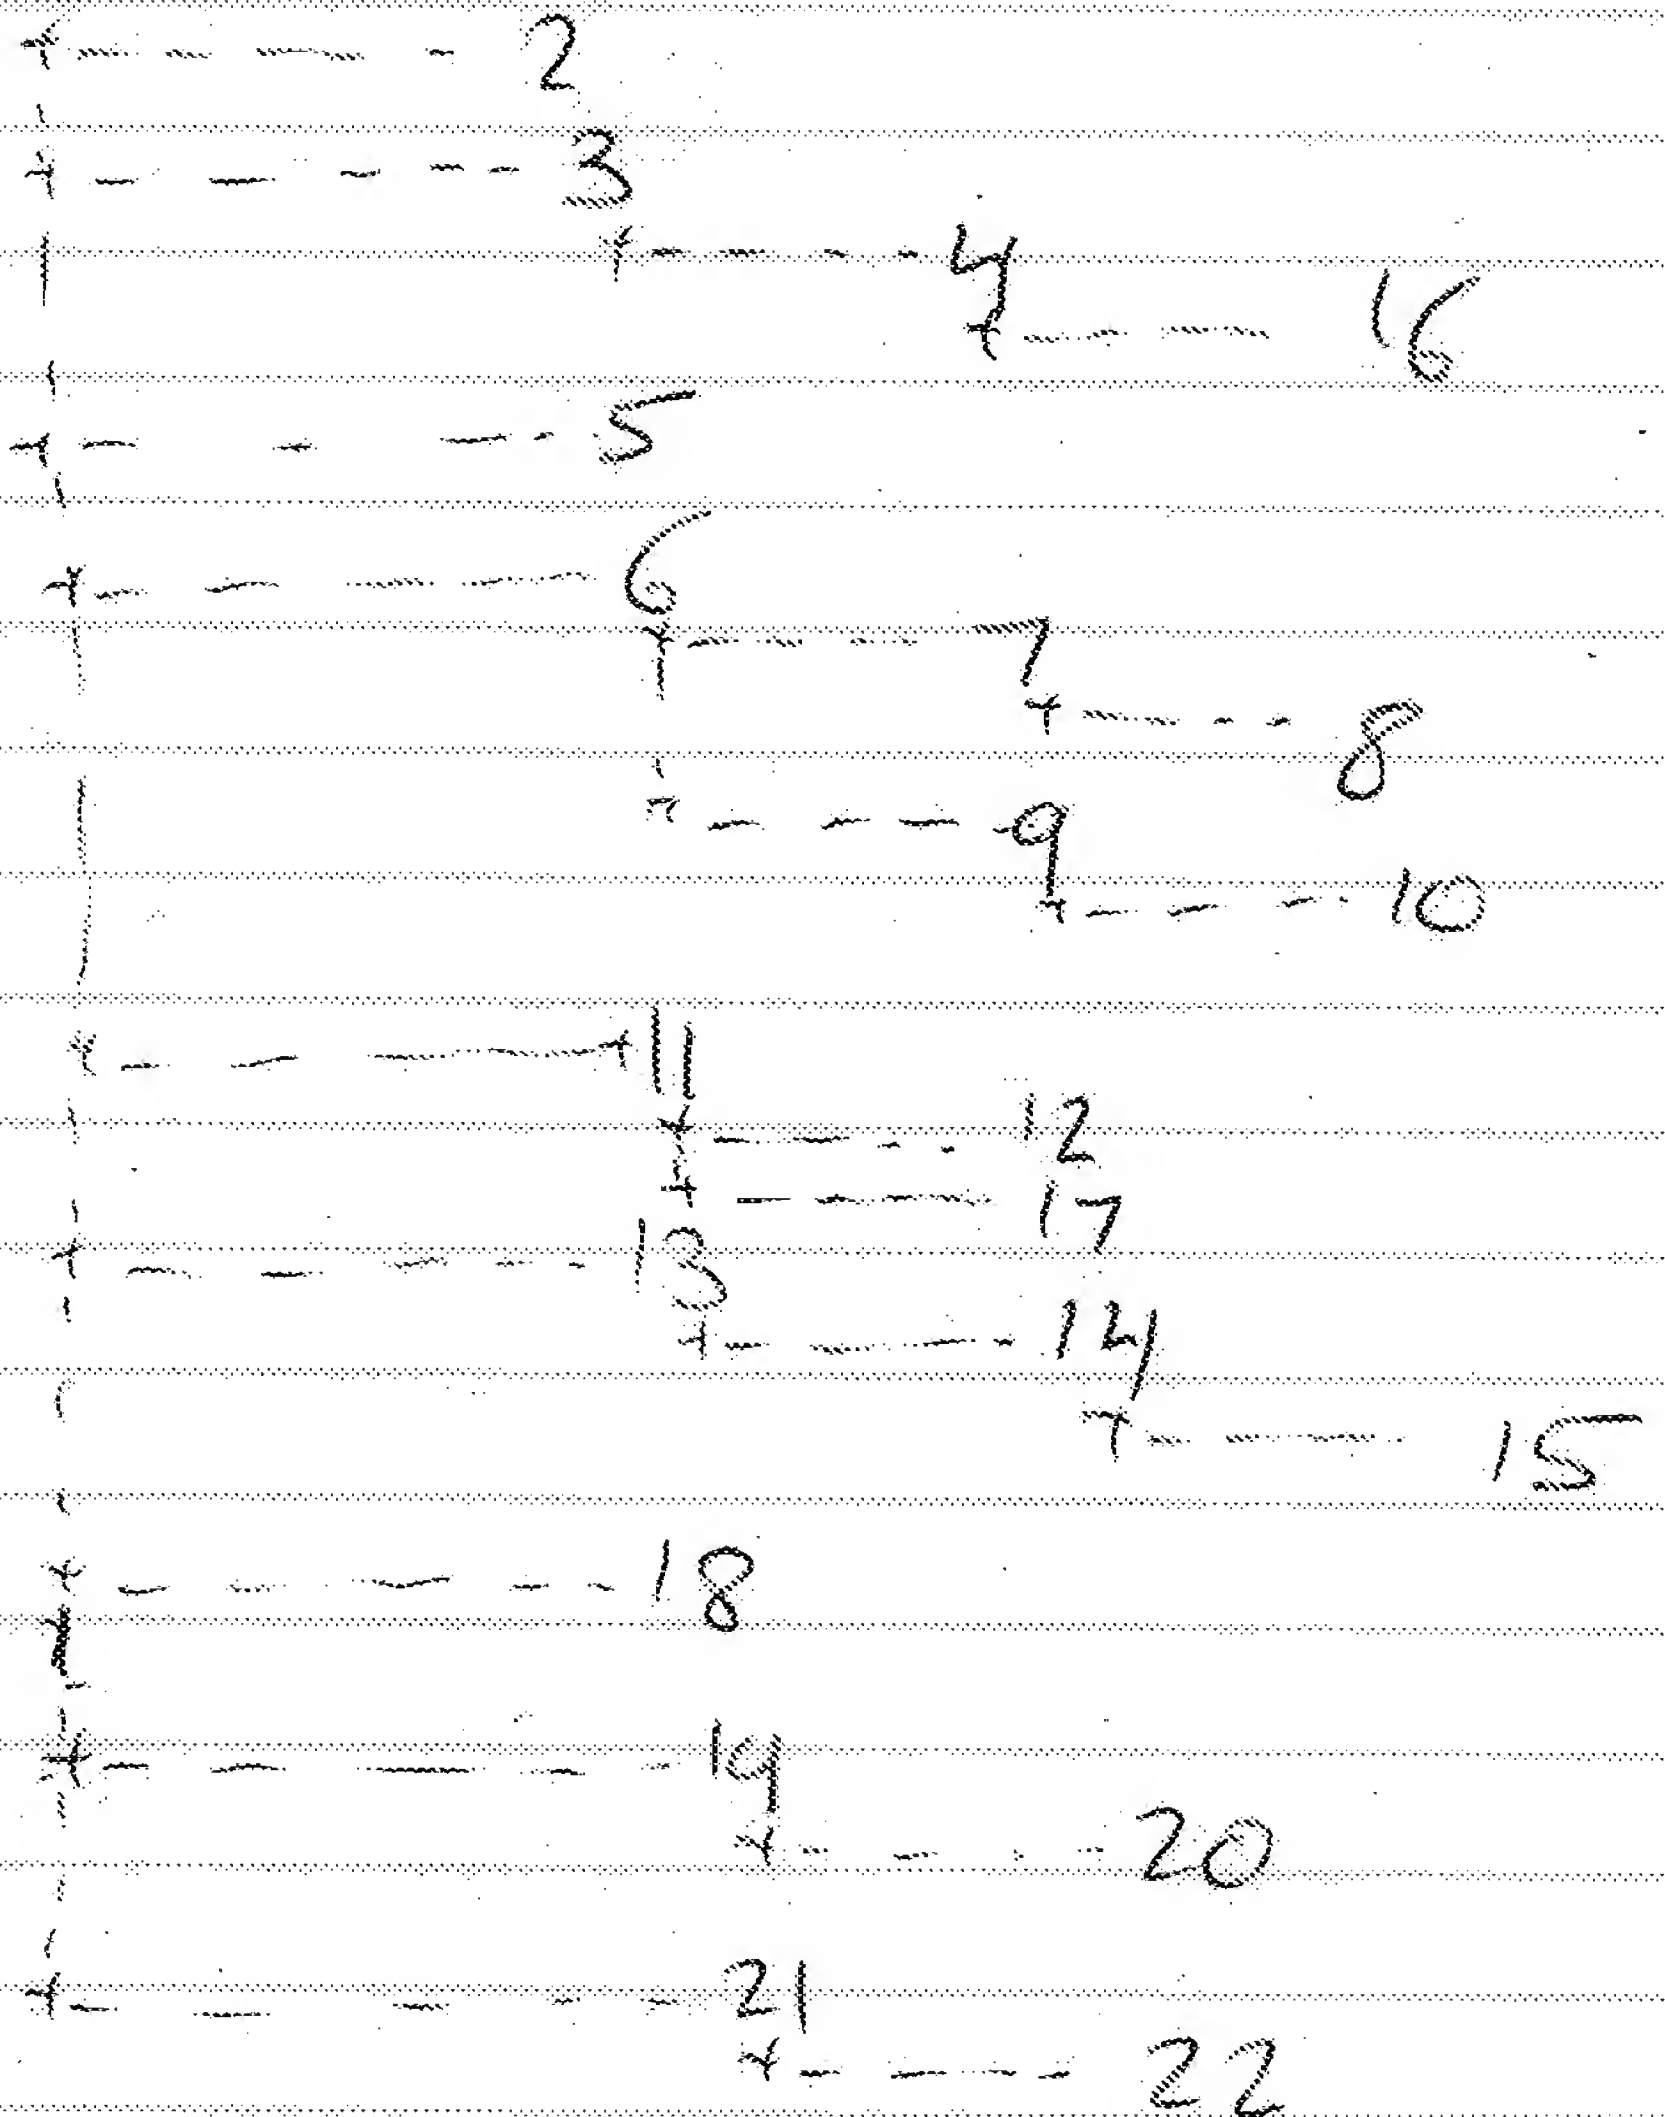 2
3
4
16
5
6
7
8
9
10
11
12
17
13
14
15
18
19
20
21
22